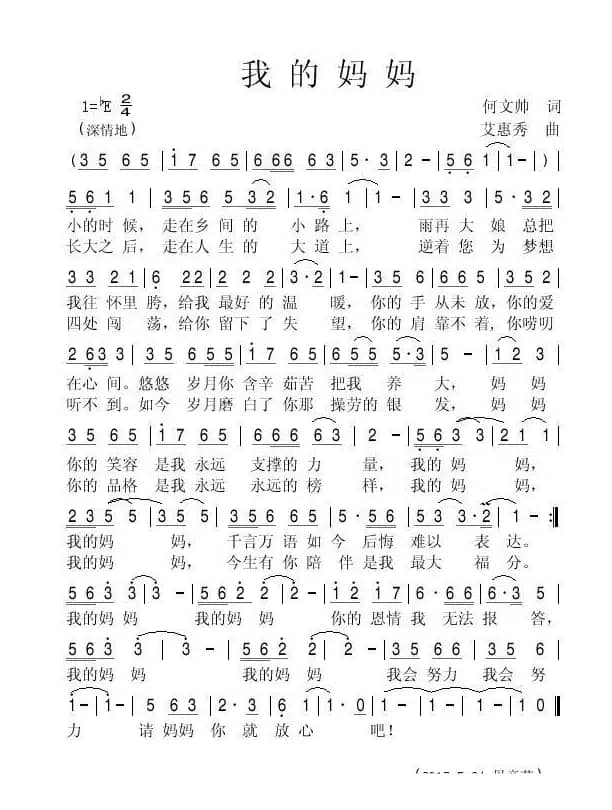 我的妈妈
1=♭E 2/4 何文帅 词
(深情地) 艾惠秀 曲
(3 5 6 5 | i 7 6 5 | 6 66 6 3 | 3 5· | 2 - | 5 6 1 | 1 - |)
5 6 1 1 | 2 3 5 6 5 | 2 32 3 3 | 1·6 1 | 1 - | 3 3 3 | 5·3 2 |
小的时 候，走在乡 间的 小路上， 雨再大 娘总把
长大之 后，走在人 生的 大道上， 逆着您 为梦想
3 3 2 1 | 6 2 2 | 2 2 2 | 3·2 | 1 - | 3 5 6 | 6 0 6 5 | 3 5 6 |
我往 怀里 胯，给我 最好 的 温 暖，你的 手 从未 放，你的 爱
四处 闯 荡，给你 留下 了 失 望，你的 肩 靠不 着，你唠叨
2 6 3 3 | 3 5 5 | 3 5 6 5 | i 7 6 5 | 6 5 5 | 5 3 3· | 5 - | 1 2 3 |
在心 间。悠悠 岁月你 含辛 茹苦 把我 养 大， 妈 妈
听不 到。如今 岁月磨 白了 你那 操劳的 银 发， 妈 妈
3 5 6 5 | i 7 6 5 | 6 66 6 6 | 6 3· | 2 - | 5 6 3 3 | 2 1 1 |
你的 笑容 是我 永远 支撑的 力 量， 我的 妈 妈，
你的 品格 是我 永远 永远的 榜 样， 我的 妈 妈，
2 3 5 5 | 3 5 5 | 3 5 6 6 | 1 6 5 | 5· 5 6 | 5 3 3·2 | 1 - :‖
我的 妈 妈， 千言万 语如 今 后悔 难以 表 达。
我的 妈 妈， 今生有 你陪 伴 是我 最大 福 分。
5 6 3 | 3 - | 5 6 2 2 | 2 - | 1 2 6 | 6·6 6 | 3·3 7 | 7 6 6 |
我的妈 妈 我的妈 妈 你的恩情 我 无法报 答，
5 6 2 | 2 - | 2 - | 5 6 2 | 2 - | 3 5 6 3 | 2 3 5 6 |
我的妈 妈 我的妈 妈 我会 努力 我会 努
i - | i - | 5 6 3 | 2·3 | 2 6 | 1 - | 1·0 | i - | i - | i - | i 0 ‖
力 请妈妈 你 就 放心 吧！